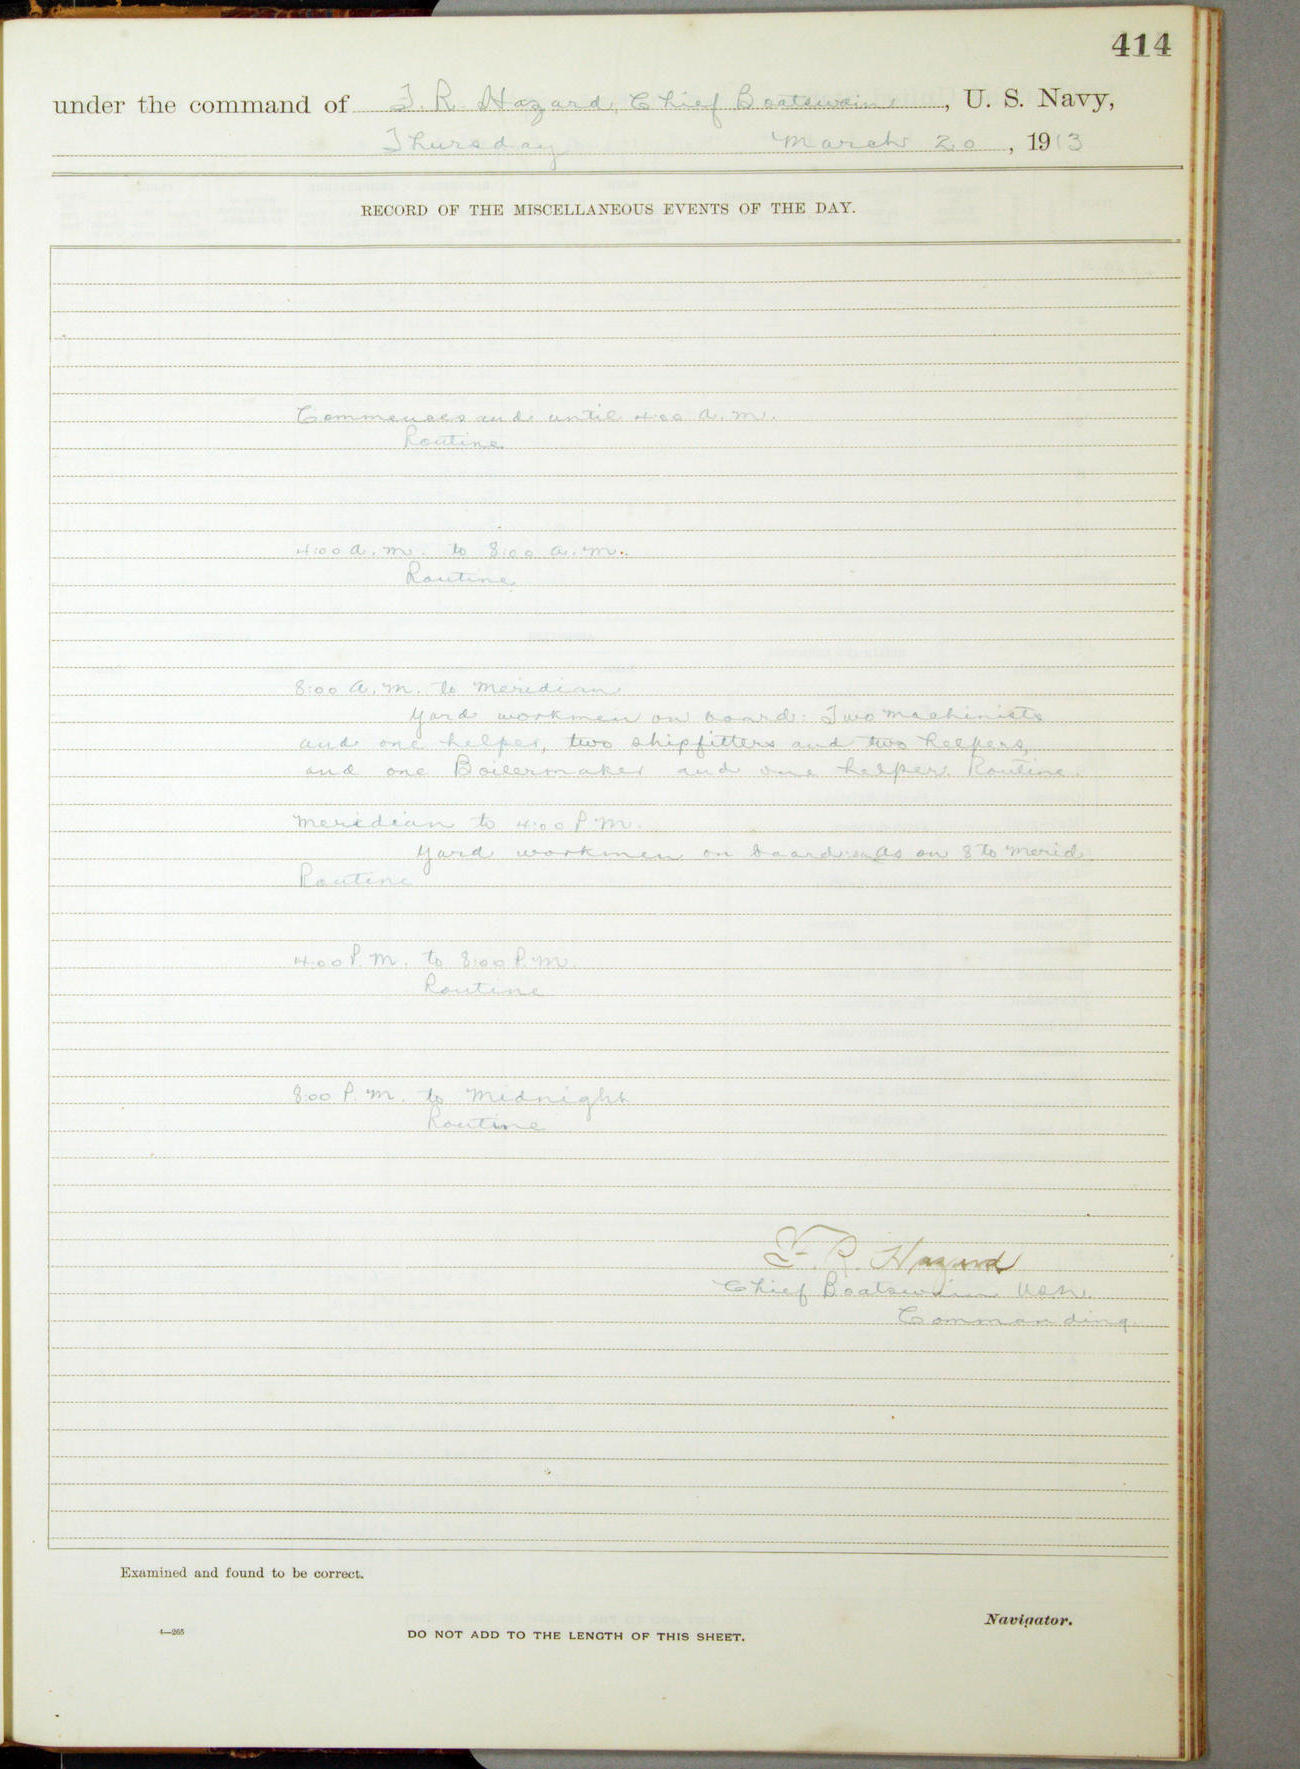 414
under the command of T. R. Hazard, Chief Boatswain, U. S. Navy,
Thursday March 20, 1913
RECORD OF THE MISCELLANEOUS EVENTS OF THE DAY.
Commences and until 4:00 a.m.
Routine
4:00 a.m. to 8:00 a.m.
Routine
8:00 A.M. to Meridian
Yard workmen on board: Two Machinists
and one helper, two shipfitters and two helpers,
and one Boilermaker and one helper. Routine.
Meridian to 4:00 P.M.
Yard workmen on board: As on 8 to Merid.
Routine
4:00 P.M. to 8:00 P.M.
Routine
8:00 P.M. to Midnight
Routine
T. R. Hazard
Chief Boatswain USN.
Commanding.
Examined and found to be correct.
Navigator.
4—265
DO NOT ADD TO THE LENGTH OF THIS SHEET.